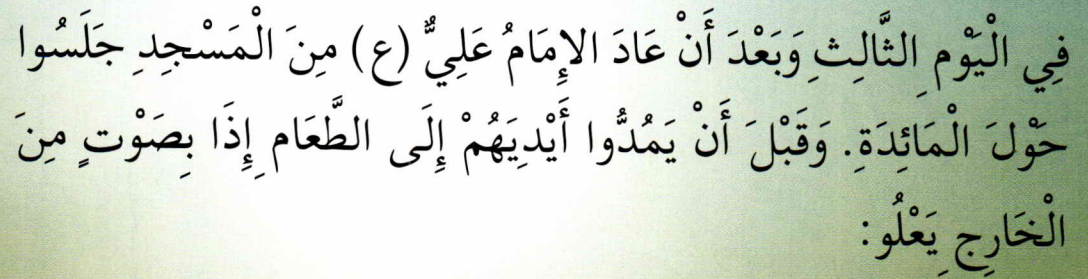 فِي الْيَوْمِ الثَّالِثِ وَبَعْدَ أَنْ عَادَ الإِمَامُ عَلِيٌّ (ع) مِنَ الْمَسْجِدِ جَلَسُوا
حَوْلَ الْمَائِدَةِ. وَقَبْلَ أَنْ يَمُدُّوا أَيْدِيَهُمْ إِلَى الطَّعَامِ إِذَا بِصَوْتٍ مِنَ
الْخَارِجِ يَعْلُو: